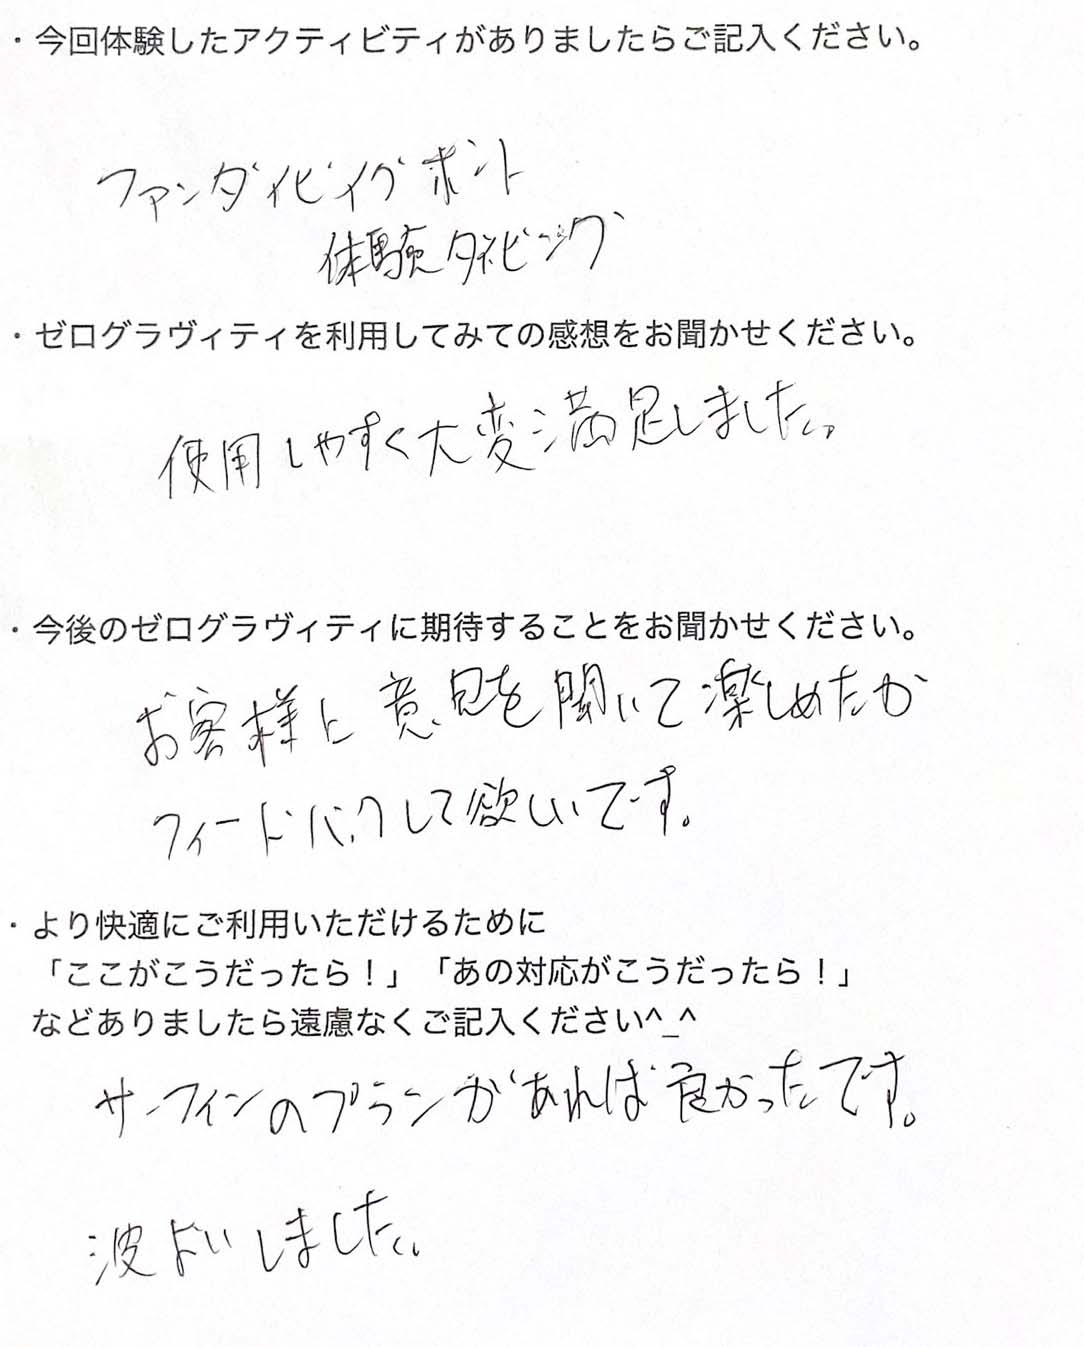 ・今回体験したアクティビティがありましたらご記入ください。
ファンダイビイグ ボント
体験ダイビング
・ゼログラヴィティを利用してみての感想をお聞かせください。
使用しやすく大変満足しました。
・今後のゼログラヴィティに期待することをお聞かせください。
お客様に意見を聞いて楽しめたか
フィードバックして欲しいです。
・より快適にご利用いただけるために
「ここがこうだったら！」「あの対応がこうだったら！」
などありましたら遠慮なくご記入ください^_^
サーフィンのプランがあれば良かったです。
波よいしました。